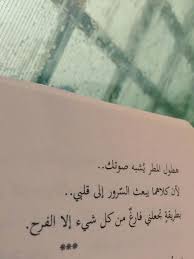 هطول المطر يُشبه صوتك..
لأن كلاهما يبعث السّرور إلى قلبي..
بطريقةٍ تجعلني فارغٌ من كل شيء إلا الفرح.
***